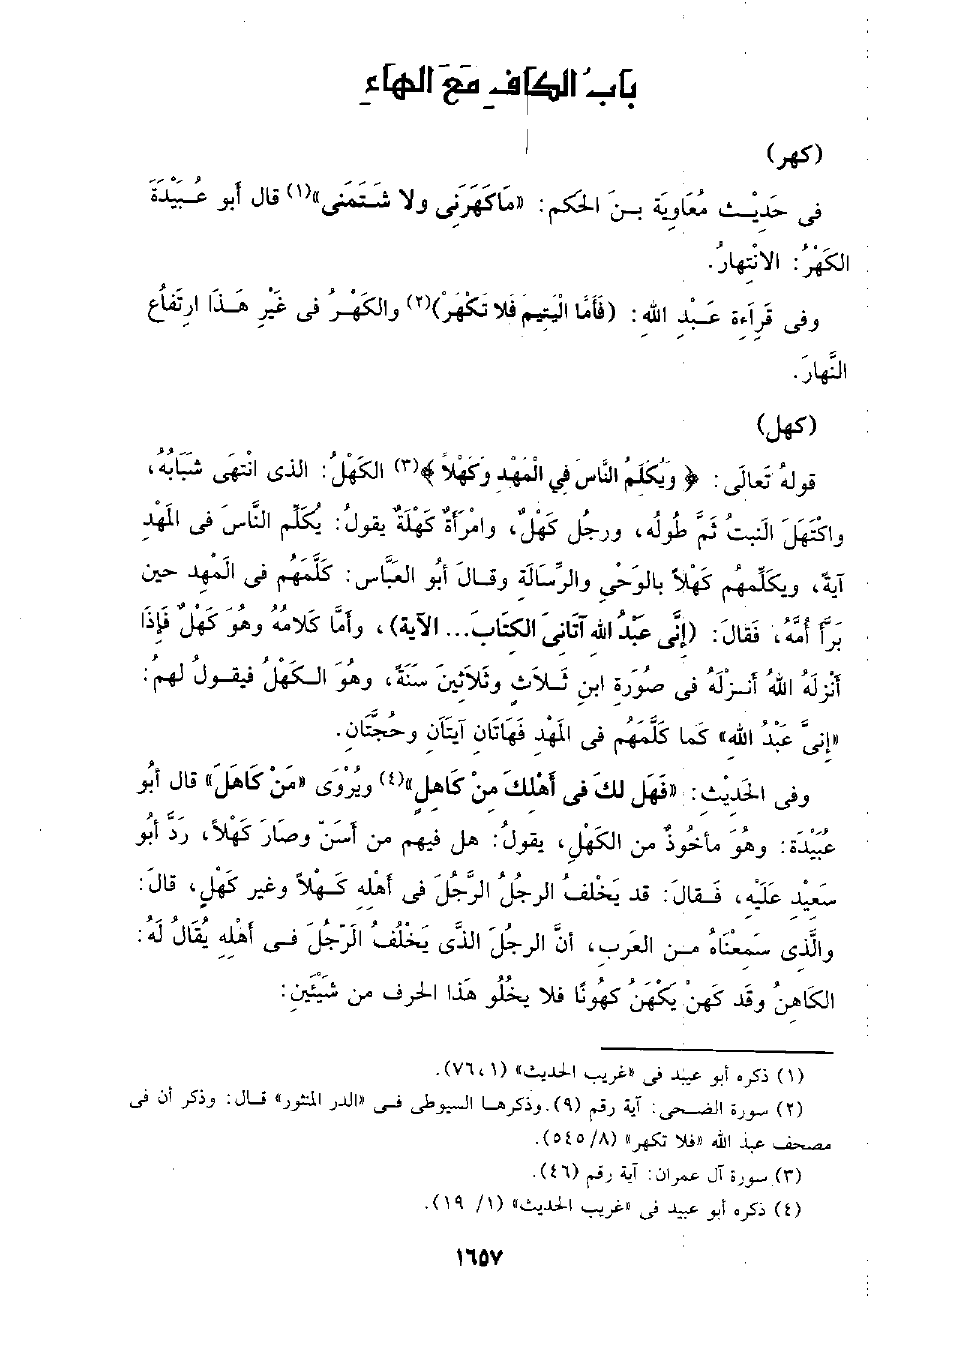 بَابُ الكافِ مَعَ الهاءِ
(كهر)
فى حَدِيْث مُعَاوِيَة بن الحَكم: «مَاكَهَرَنِى ولا شَتَمَنى»(١) قال أبو عُبَيْدَةَ
الكَهْرُ: الانْتِهارُ.
وفى قَراءة عَبْدِ اللهِ: (فَأَمَّا الْيَتِيمَ فَلا تَكْهَرْ)(٢) والكَهْرُ فى غَيْرِ هَذَا ارتَفَاعُ
النَّهارَ.
(كهل)
قولهُ تَعالَى: ﴿ وَيُكَلِّمُ النَّاسَ فِي الْمَهْدِ وَكَهْلاً ﴾(٣) الكَهْلُ: الذى انْتَهَى شَبَابُهُ،
واكْتَهَلَ النَبتُ ثَمَّ طُولُه، ورجلُ كَهْلٌ، وامْرَأَةٌ كَهْلَةٌ يقولُ: يُكَلِّم النَّاسَ فى المَهْدِ
آيةٌ، ويكلِّمهُم كَهْلاً بالوَحْيِ والرِّسَالَةِ وقالَ أبُو العَبَّاس: كَلَّمَهُم فى الَمْهِد حين
بَرَّأ أُمَّهُ، فَقالَ: (إنَّى عَبْدُ الله آتَانىَ الكتَابَ... الآية)، وأمَّا كَلامُهُ وهُوَ كَهْلٌ فَإذَا
أنْزلَهُ اللهُ أنزلْهُ فى صُورَةِ ابنِ ثَلاثٍ وثَلاثِينَ سَنَةً، وهُوَ الكَهْلُ فيقولُ لهمُ:
«إنىَّ عَبْدُ اللهِ» كَما كَلَّمَهُم فى المَهْدِ فَهَاتَانِ آيَتَانِ وحُجَّتَانِ.
وفى الحَدِيْثِ: «فَهَل لكَ فى أهْلِكَ مِنْ كَاهِلٍ»(٤) ويُرْوَى «مَنْ كَاهَلَ» قال أبُو
عُبَيْدَة: وهُوَ مأخُوذٌ من الكَهْلِ، يقولُ: هل فيهم من أسَنّ وصَارَ كَهْلاً، رَدَّ أبُو
سَعِيْد عَلَيْهِ، فَقالَ: قد يَخْلفُ الرجلُ الرَّجُلَ فى أهْلِهِ كَهْلاً وغير كَهْلٍ، قالَ:
والَّذِى سَمِعْنَاهُ مِن العَربِ، أنَّ الرجلَ الذَّى يَخْلُفُ الَرّجُلَ فى أهْلِه يُقَالُ لَهُ:
الكَاهِنُ وقَد كَهنْ يَكْهَنُ كهُونًا فلا يخْلُو هَذا الحَرف من شَيْئَينِ:
(١) ذكره أبو عبيد فى «غريب الحديث» (٧٦،١).
(٢) سورة الضحى: آية رقم (٩).وذكرها السيوطى فى «الدر المنثور» قال: وذكر أن فى
مصحف عبد الله «فلا تكهر» (٨/ ٥٤٥).
(٣) سورة آل عمران: آية رقم (٤٦).
(٤) ذكره أبو عبيد فى «غريب الحديث» (١/ ١٩).
١٦٥٧